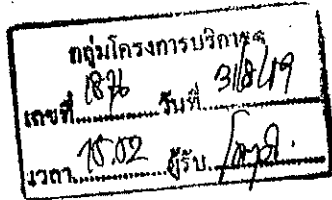 กลุ่มโครงการบริการฯ
เลขที่ 1876 วันที่ 31/8/49
เวลา 15.02 ผู้รับ